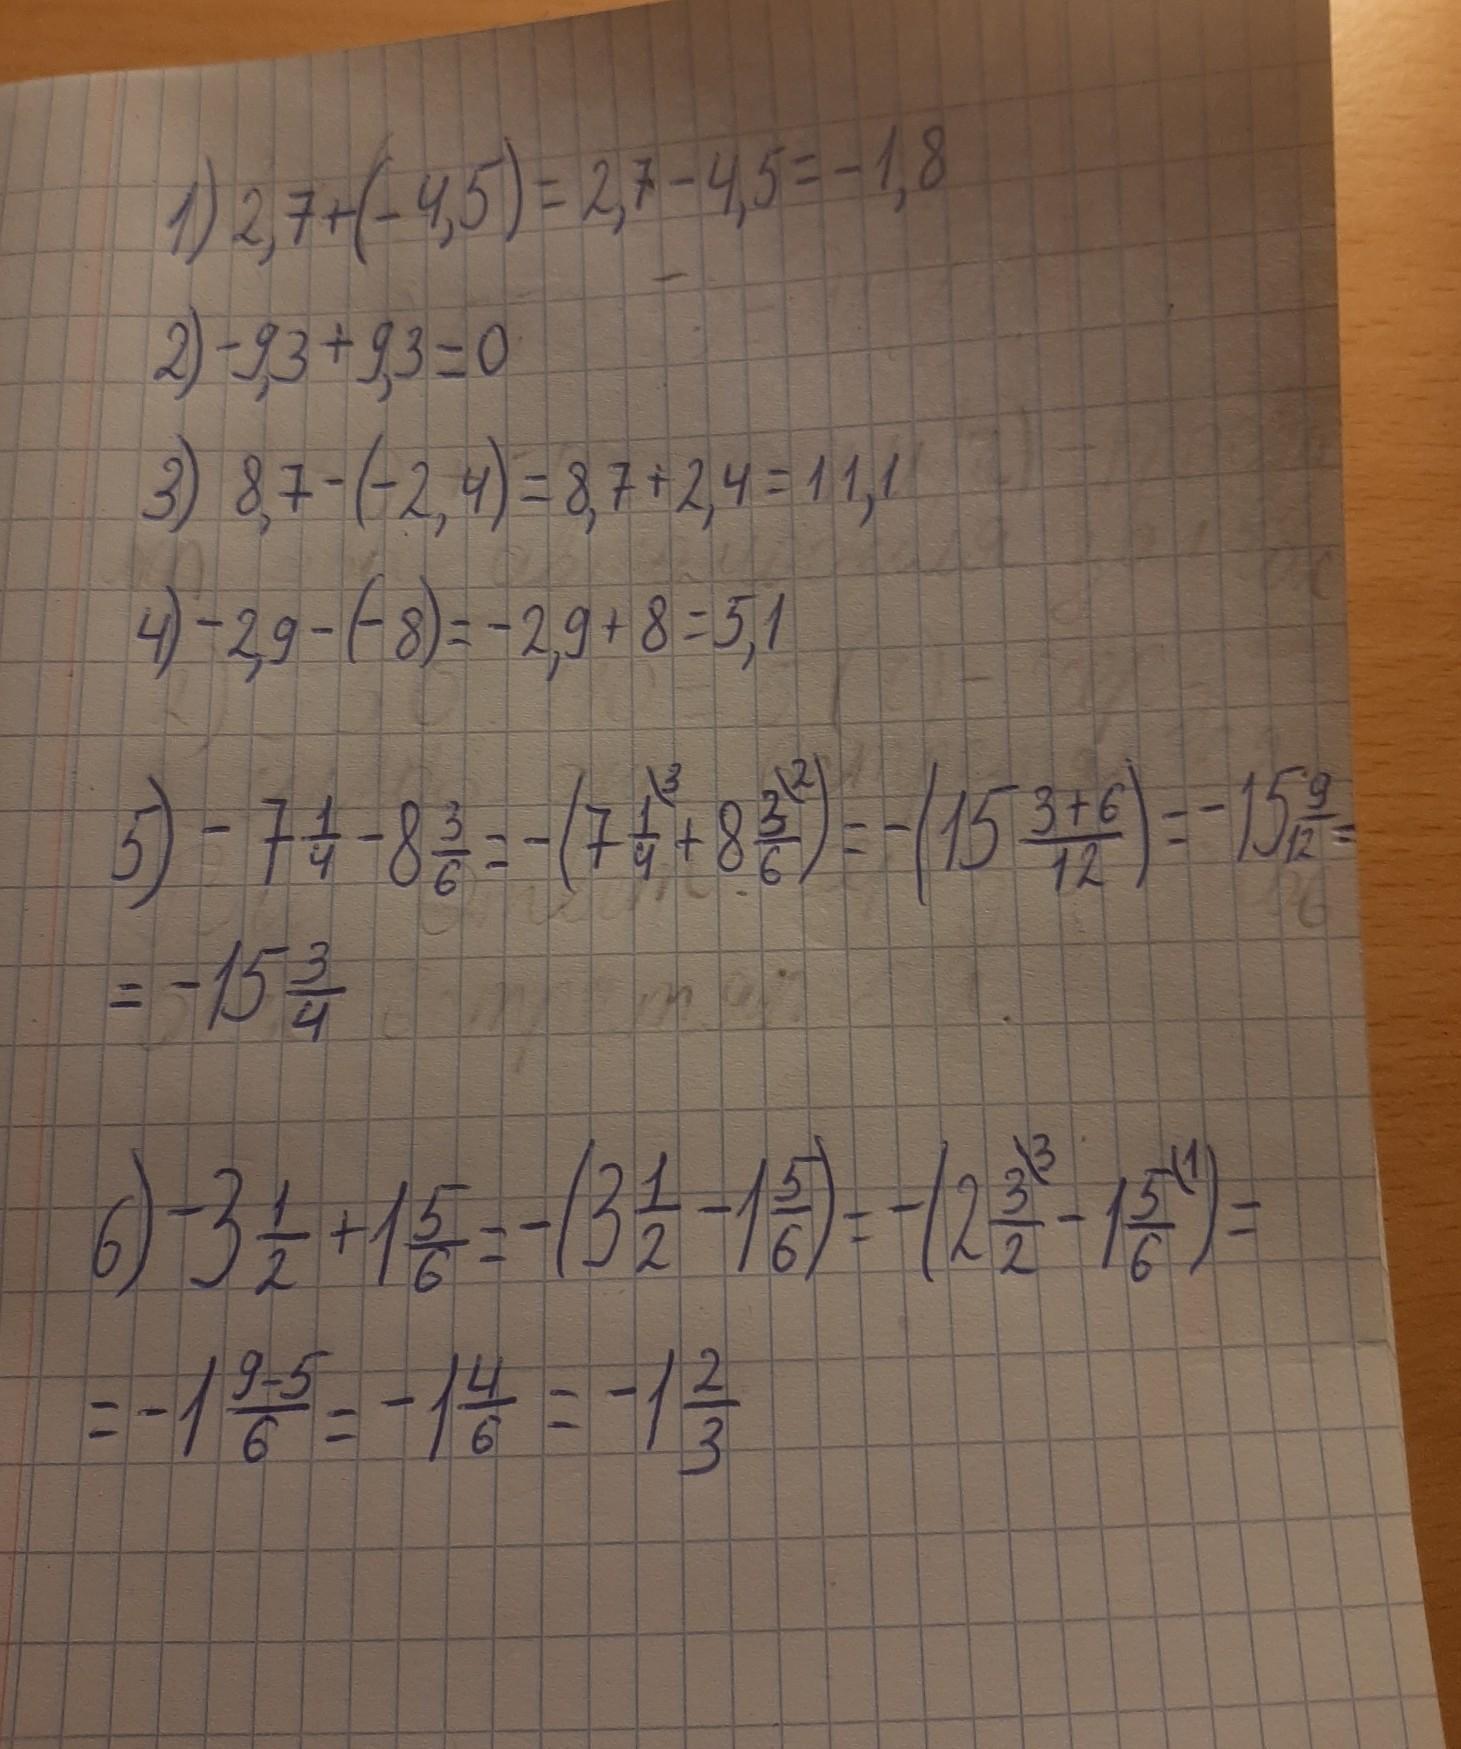 1) 2,7+(-4,5)=2,7-4,5=-1,8
2) -9,3+9,3=0
3) 8,7-(-2,4)=8,7+2,4=11,1
4) -2,9-(-8)=-2,9+8=5,1
5) -7 1/4 -8 3/6 =-(7 1/4 \3 +8 3/6 \2)=-(15 3+6/12)=-15 9/12=
=-15 3/4
6) -3 1/2 +1 5/6 =-(3 1/2 -1 5/6)=-(2 3/2 \3 -1 5/6 \1)=
=-1 9-5/6 =-1 4/6 =-1 2/3